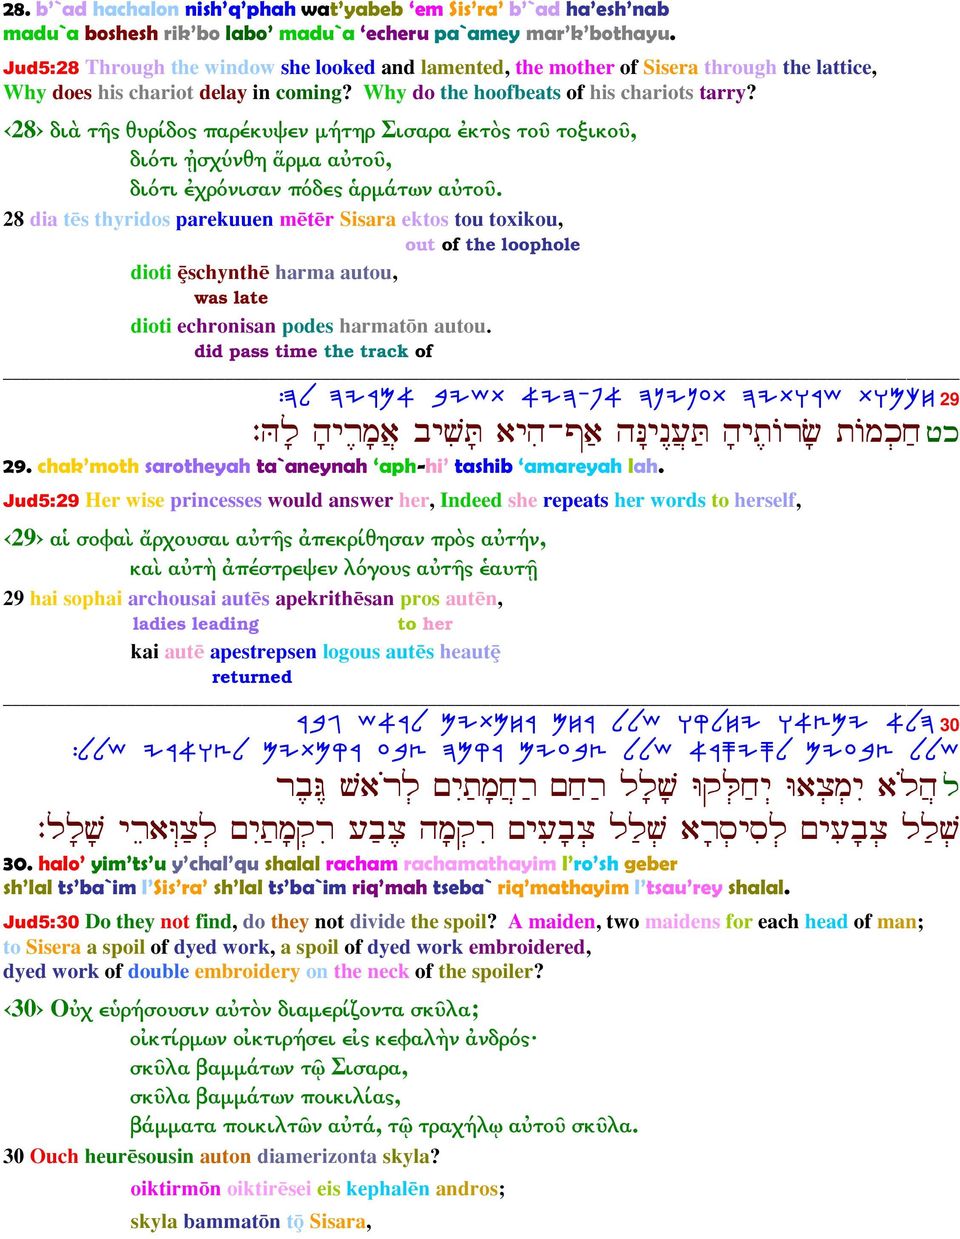 28. b’`ad hachalon nish’q’phah wat’yabeb ‘em Sis’ra’ b’`ad ha’esh’nab
madu`a boshesh rik’bo labo’ madu`a ‘echeru pa`amey mar’k’bothayu.
Jud5:28 Through the window she looked and lamented, the mother of Sisera through the lattice,
Why does his chariot delay in coming? Why do the hoofbeats of his chariots tarry?
‹28› διὰ τῆς θυρίδος παρέκυψεν μήτηρ Σισαρα ἐκτὸς τοῦ τοξικοῦ,
διότι ᾐσχύνθη ἅρμα αὐτοῦ,
διότι ἐχρόνισαν πόδες ἁρμάτων αὐτοῦ.
28 dia tēs thyridos parekuuen mētēr Sisara ektos tou toxikou,
out of the loophole
dioti ȩ̄schynthē harma autou,
was late
dioti echronisan podes harmatōn autou.
did pass time the track of
𐤇𐤊𐤌𐤅𐤕 𐤔𐤓𐤅𐤕𐤉𐤄 𐤕𐤏𐤍𐤉𐤍𐤄 𐤀𐤐-𐤄𐤉𐤀 𐤕𐤔𐤉𐤁 𐤀𐤌𐤓𐤉𐤄 𐤋𐤄: 29
כט חַכְמוֹת שָׂרוֹתֶיהָ תַּעֲנֶינָּה אַף־הִיא תָּשִׁיב אֲמָרֶיהָ לָהּ:
29. chak’moth sarotheyah ta`aneynah ‘aph-hi’ tashib ‘amareyah lah.
Jud5:29 Her wise princesses would answer her, Indeed she repeats her words to herself,
‹29› αἱ σοφαὶ ἄρχουσαι αὐτῆς ἀπεκρίθησαν πρὸς αὐτήν,
καὶ αὐτὴ ἀπέστρεψεν λόγους αὐτῆς ἑαυτῇ
29 hai sophai archousai autēs apekrithēsan pros autēn,
ladies leading to her
kai autē apestrepsen logous autēs heautȩ̄
returned
𐤄𐤋𐤀 𐤉𐤌𐤑𐤀𐤅 𐤉𐤇𐤋𐤒𐤅 𐤔𐤋𐤋 𐤓𐤇𐤌 𐤓𐤇𐤌𐤕𐤉𐤌 𐤋𐤓𐤀𐤔 𐤂𐤁𐤓 30
𐤔𐤋𐤋 𐤑𐤁𐤏𐤉𐤌 𐤋𐤎𐤉𐤎𐤓𐤀 𐤔𐤋𐤋 𐤑𐤁𐤏𐤉𐤌 𐤓𐤒𐤌𐤄 𐤑𐤁𐤏 𐤓𐤒𐤌𐤕𐤉𐤌 𐤋𐤑𐤅𐤀𐤓𐤉 𐤔𐤋𐤋:
ל הֲלֹא יִמְצְאוּ יְחַלְּקוּ שָׁלָל רַחַם רַחֲמָתַיִם לְרֹאשׁ גֶּבֶר
שְׁלַל צְבָעִים לְסִיסְרָא שְׁלַל צְבָעִים רִקְמָה צֶבַע רִקְמָתַיִם לְצַוְּארֵי שָׁלָל:
30. halo’ yim’ts’u y’chal’qu shalal racham rachamathayim l’ro’sh geber
sh’lal ts’ba`im l’Sis’ra’ sh’lal ts’ba`im riq’mah tseba` riq’mathayim l’tsau’rey shalal.
Jud5:30 Do they not find, do they not divide the spoil? A maiden, two maidens for each head of man;
to Sisera a spoil of dyed work, a spoil of dyed work embroidered,
dyed work of double embroidery on the neck of the spoiler?
‹30› Οὐχ εὑρήσουσιν αὐτὸν διαμερίζοντα σκῦλα;
οἰκτίρμων οἰκτιρήσει εἰς κεφαλὴν ἀνδρός·
σκῦλα βαμμάτων τῷ Σισαρα,
σκῦλα βαμμάτων ποικιλίας,
βάμματα ποικιλτῶν αὐτά, τῷ τραχήλῳ αὐτοῦ σκῦλα.
30 Ouch heurēsousin auton diamerizonta skyla?
oiktirmōn oiktirēsei eis kephalēn andros;
skyla bammatōn tō̧ Sisara,